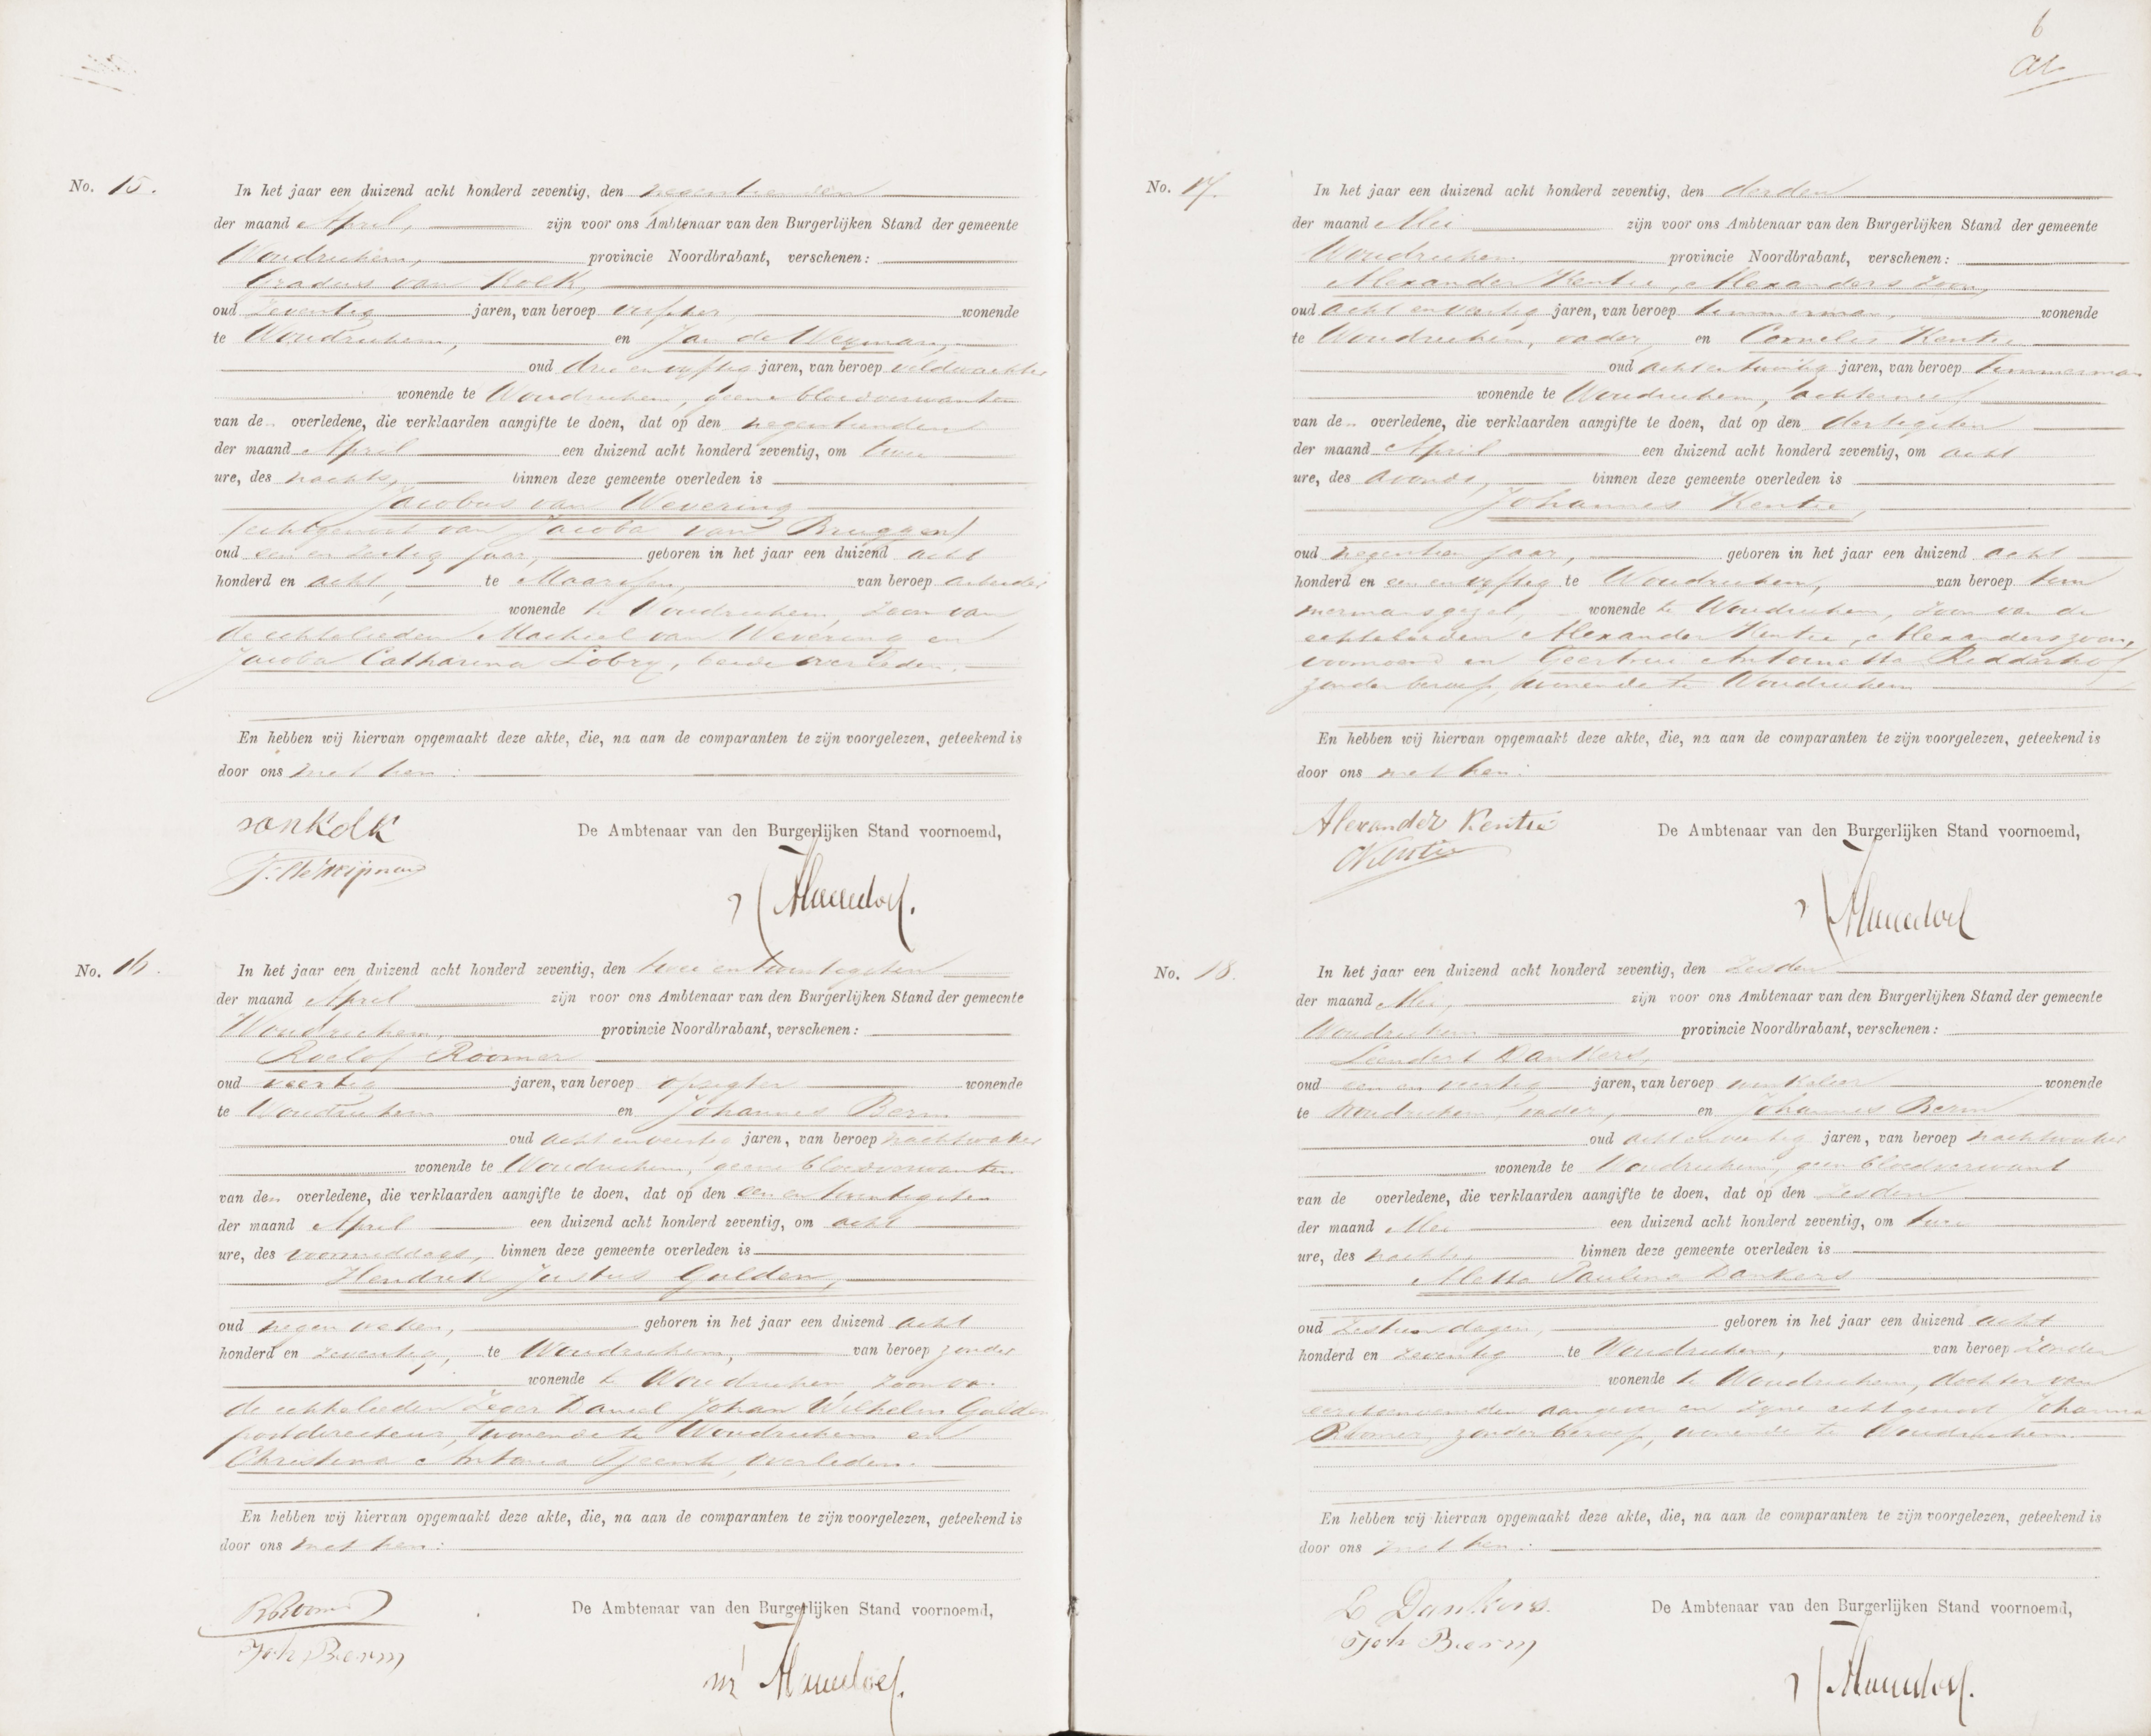 No. 15.
In het jaar een duizend acht honderd zeventig, den negentienden
der maand April, zijn voor ons Ambtenaar van den Burgerlijken Stand der gemeente
Woudrichem, provincie Noordbrabant, verschenen:
Gradus van Kolk,
oud zeventig jaren, van beroep wonende
te Woudrichem, en Jan de Weyman,
oud drie en vyftig jaren, van beroep veldwachter
wonende te Woudrichem, geene bloedverwanten
van de overledene, die verklaarden aangifte te doen, dat op den negentienden
der maand April een duizend acht honderd zeventig, om twee
ure, des nachts, binnen deze gemeente overleden is
Jacobus van Wevering
(echtgenoot van Jacoba van Bruggen)
oud een en zestig jaar, geboren in het jaar een duizend acht
honderd en acht, te Maarssen, van beroep arbeider
wonende te Woudrichem, zoon van
de echtelieden Machiel van Wevering en
Jacoba Catharina Lobry, beide overleden.
En hebben wij hiervan opgemaakt deze akte, die, na aan de comparanten te zijn voorgelezen, geteekend is
door ons met hen:
van Kolk
De Ambtenaar van den Burgerlijken Stand voornoemd,
J. de Weijman
No. 16.
In het jaar een duizend acht honderd zeventig, den twee en twintigsten
der maand April zijn voor ons Ambtenaar van den Burgerlijken Stand der gemeente
Woudrichem, provincie Noordbrabant, verschenen:
Roelof Roomer
oud veertig jaren, van beroep opzigter wonende
te Woudrichem en Johannes Berm
oud acht en veertig jaren, van beroep nachtwaker
wonende te Woudrichem, geene bloedverwanten
van den overledene, die verklaarden aangifte te doen, dat op den een en twintigsten
der maand April een duizend acht honderd zeventig, om acht
ure, des voormiddags, binnen deze gemeente overleden is
Hendrik Justus Gulden,
oud negen weken, geboren in het jaar een duizend acht
honderd en zeventig, te Woudrichem, van beroep zonder
wonende te Woudrichem, zoon van
de echtelieden Zeger Daniel Johan Wilhelm Gulden
postdirecteur, wonende te Woudrichem en
Christina Antonia Tjeenk, overleden.
En hebben wij hiervan opgemaakt deze akte, die, na aan de comparanten te zijn voorgelezen, geteekend is
door ons met hen:
R Roomer
De Ambtenaar van den Burgerlijken Stand voornoemd,
Joh Berm
6
No. 17.
In het jaar een duizend acht honderd zeventig, den derden
der maand Mei zijn voor ons Ambtenaar van den Burgerlijken Stand der gemeente
Woudrichem provincie Noordbrabant, verschenen:
Alexander Kentie, Alexanders zoon,
oud acht en veertig jaren, van beroep timmerman, wonende
te Woudrichem, vader, en Cornelis Kentie
oud acht en twintig jaren, van beroep timmerman
wonende te Woudrichem, achterneef
van den overledene, die verklaarden aangifte te doen, dat op den dertigsten
der maand April een duizend acht honderd zeventig, om acht
ure, des avonds, binnen deze gemeente overleden is
Johannes Kentie,
oud negentien jaar, geboren in het jaar een duizend acht
honderd en een en vyftig te Woudrichem, van beroep tim
mermansgezel, wonende te Woudrichem, zoon van de
echtelieden Alexander Kentie, Alexanderszoon,
voornoemd en Geertrui Antonetta Redderhof
zonder beroep, wonende te Woudrichem
En hebben wij hiervan opgemaakt deze akte, die, na aan de comparanten te zijn voorgelezen, geteekend is
door ons met hen:
Alexander Kentie
De Ambtenaar van den Burgerlijken Stand voornoemd,
CKentie
No. 18.
In het jaar een duizend acht honderd zeventig, den zesden
der maand Mei, zijn voor ons Ambtenaar van den Burgerlijken Stand der gemeente
Woudrichem provincie Noordbrabant, verschenen:
Leendert Dankers,
oud een en veertig jaren, van beroep winkelier wonende
te Woudrichem, vader, en Johannes Berm
oud acht en veertig jaren, van beroep nachtwaker
wonende te Woudrichem, geen bloedverwant
van de overledene, die verklaarden aangifte te doen, dat op den zesden
der maand Mei een duizend acht honderd zeventig, om twee
ure, des nachts, binnen deze gemeente overleden is
Metta Paulina Dankers
oud zestien dagen, geboren in het jaar een duizend acht
honderd en zeventig te Woudrichem, van beroep zonder
wonende te Woudrichem, dochter van
eerstgenoemden aangever en zyne echtgenoot Johanna
Roomer, zonder beroep, wonende te Woudrichem.
En hebben wij hiervan opgemaakt deze akte, die, na aan de comparanten te zijn voorgelezen, geteekend is
door ons met hen:
L Dankers.
De Ambtenaar van den Burgerlijken Stand voornoemd,
Joh Berm